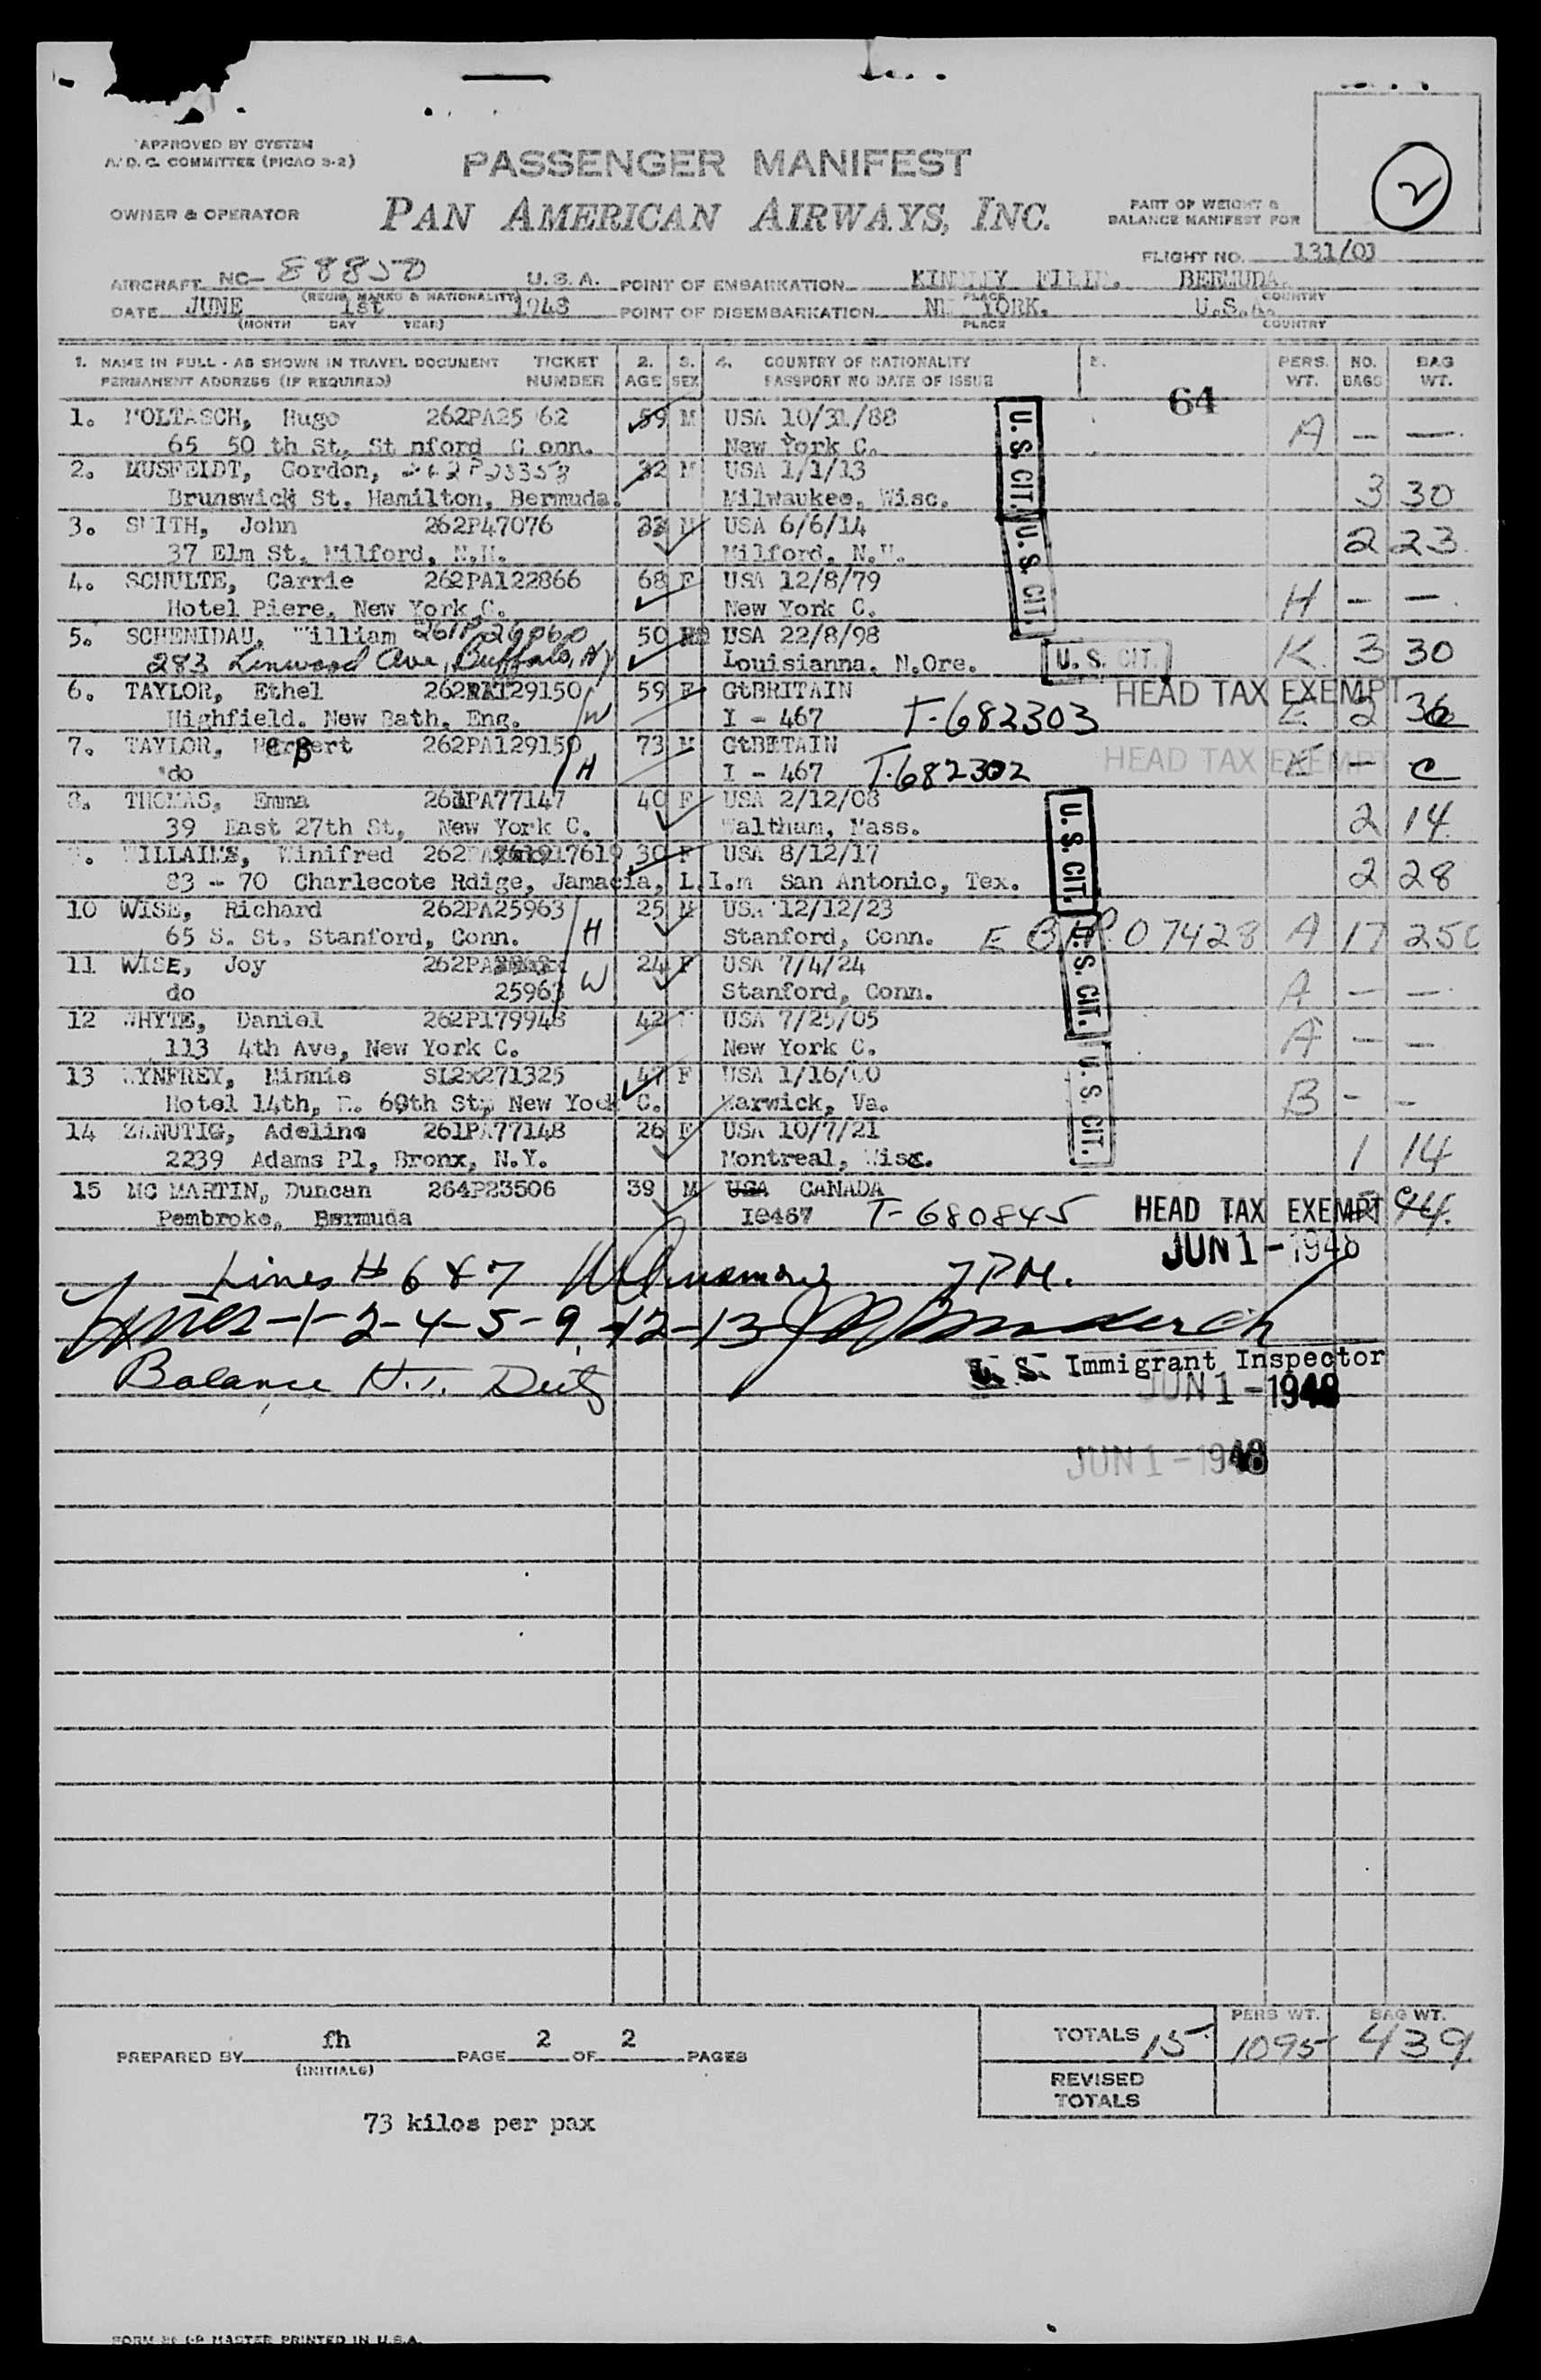 APPROVED BY SYSTEM
A. D. C. COMMITTEE (PICAO S-2)
PASSENGER MANIFEST
2
OWNER & OPERATOR
PAN AMERICAN AIRWAYS, INC.
PART OF WEIGHT &
BALANCE MANIFEST FOR
FLIGHT NO. 131/01
AIRCRAFT NC- 88850 U.S.A. POINT OF EMBARKATION KINDLEY FIELD. BERMUDA.
(REGIS. MARKS & NATIONALITY) PLACE COUNTRY
DATE JUNE 1st 1948 POINT OF DISEMBARKATION NEW YORK. U.S.A.
(MONTH DAY YEAR) PLACE COUNTRY
1. NAME IN FULL - AS SHOWN IN TRAVEL DOCUMENT TICKET 2. 3. 4. COUNTRY OF NATIONALITY PERS. NO. BAG
PERMANENT ADDRESS (IF REQUIRED) NUMBER AGE SEX PASSPORT NO DATE OF ISSUE WT. BAGS WT.
64
1. MOLTASCH, Hugo 262PA25 62 59 M USA 10/31/88
65 50 th St. St nford C onn. New York C. A - -
2. MUSFELDT, Gordon, 32 M USA 1/1/13
Brunswick St. Hamilton, Bermuda. Milwaukee, Wisc. 3 30
3. SMITH, John 262P47076 33 M USA 6/6/14
37 Elm St. Milford, N.H. Milford, N.H. 2 23
4. SCHULTE, Carrie 262PA122866 68 F USA 12/8/79
Hotel Piere, New York C. New York C. H - -
5. SCHENIDAU, William 261P26060 50 USA 22/8/98
283 Linwood Ave, Buffalo, NY Louisianna. N.Ore. U. S. CIT. K 3 30
6. TAYLOR, Ethel 262PA129150 59 F GtBRITAIN HEAD TAX EXEMPT
Highfield. New Bath. Eng. W I - 467 T-682303 2 36
7. TAYLOR, Herbert 262PA129150 73 M GtBRTAIN HEAD TAX EXEMPT
do H I - 467 T-682302 K -
8. THOMAS, Emma 261PA77147 40 F USA 2/12/08
39 East 27th St, New York C. Waltham, Mass. 2 14
9. WILLAIMS, Winifred 17619 30 F USA 8/12/17
83 - 70 Charlecote Rdige, Jamacia, L.I.m San Antonio, Tex. 2 28
10 WISE, Richard 262PA25963 25 M USA 12/12/23
65 S. St. Stanford, Conn. H Stanford, Conn. 07428 A 17 250
11 WISE, Joy 262PA 24 F USA 7/4/24
do 25963 W Stanford, Conn. A - -
12 WHYTE, Daniel 262P179948 42 USA 7/25/05
113 4th Ave, New York C. New York C. A - -
13 WYNFREY, Minnie SL2x271325 47 F USA 1/16/00
Hotel 14th, E. 60th St, New York C. Warwick, Va. B - -
14 ZANUTIG, Adeline 261PA77148 26 F USA 10/7/21
2239 Adams Pl, Bronx, N.Y. Montreal, Wisc. 1 14
15 MC MARTIN, Duncan 264P23506 39 M USA CANADA
Pembroke, Bermuda I0467 T-680845 HEAD TAX EXEMPT
U. S. CIT.
U. S. CIT.
U. S. CIT.
U. S. CIT.
U. S. CIT.
JUN 1 - 1948
Lines # 6 & 7 7 PM.
Lines -1-2-4-5-9-12-13
Balance
U. S. Immigrant Inspector
JUN 1 - 1948
JUN 1 - 1948
PREPARED BY fh PAGE 2 OF 2 PAGES
(INITIALS)
TOTALS 15 PERS WT. 1095 BAG WT. 439
REVISED
TOTALS
73 kilos per pax
MASTER PRINTED IN U.S.A.